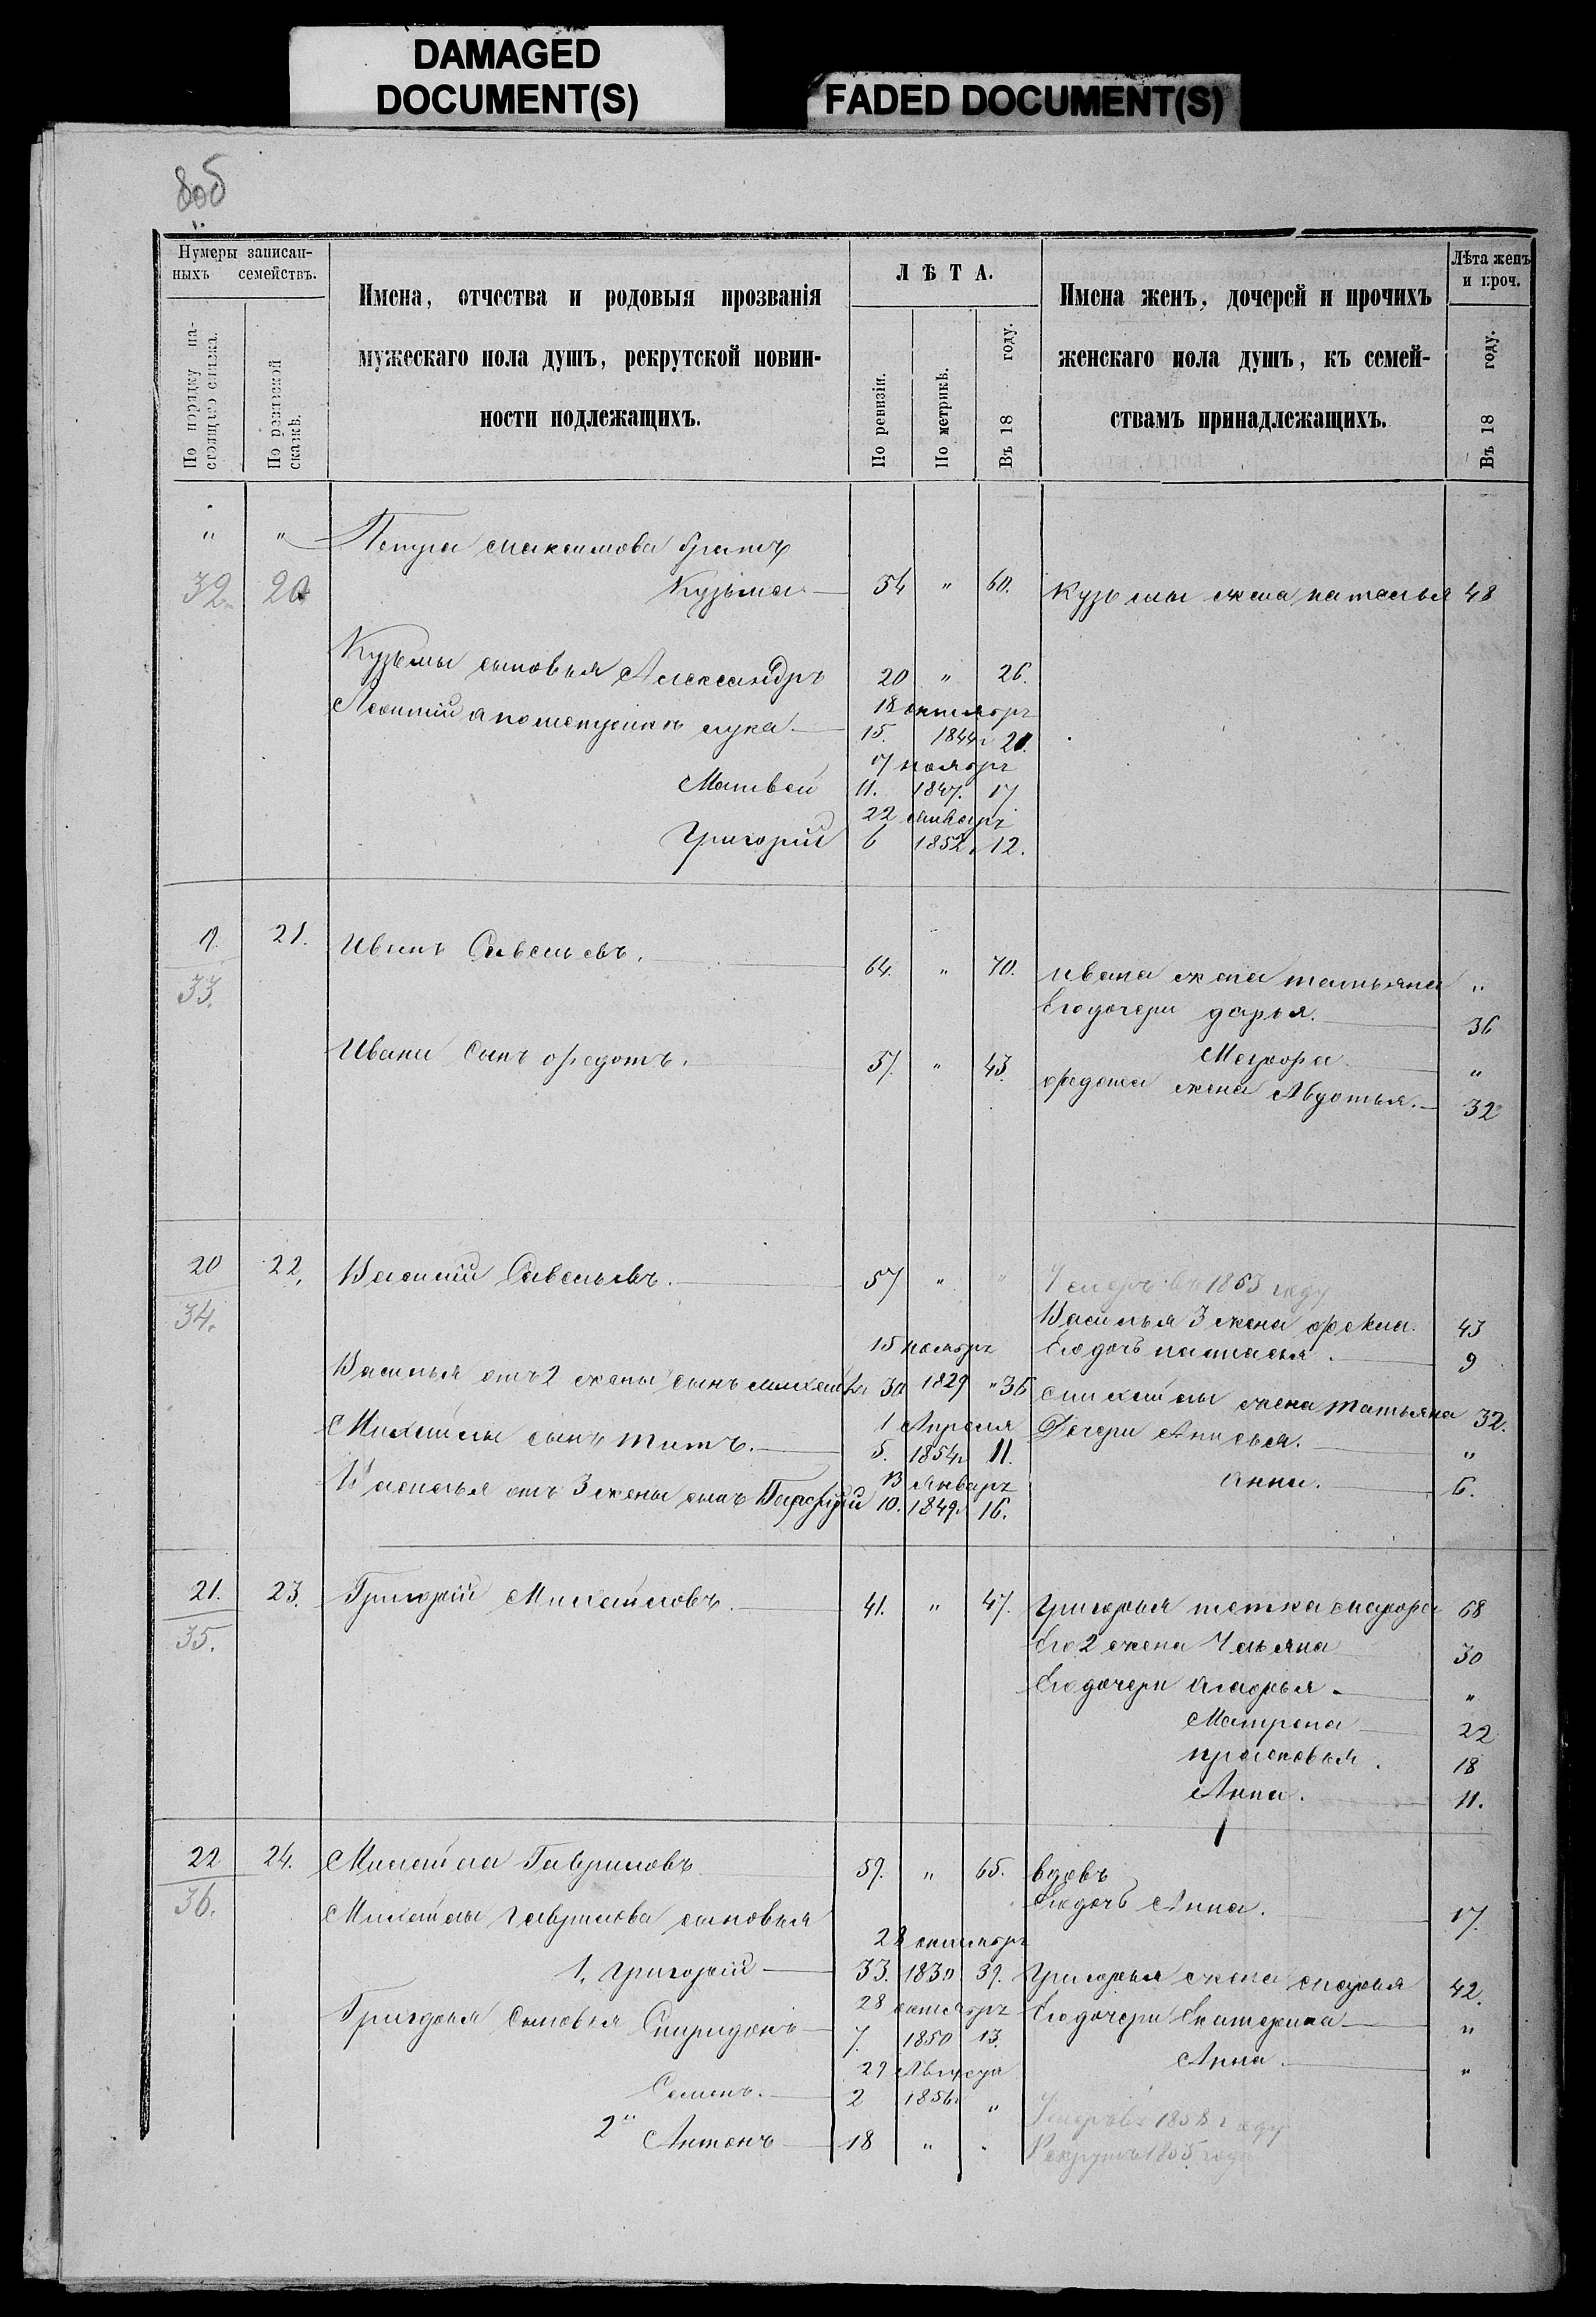 DAMAGED
DOCUMENT(S)
FADED DOCUMENT(S)
Нумеры записан-
ныхъ семействъ.
По порядку на-
стоящаго списка.
По ревизской
сказкѣ.
Имена, отчества и родовыя прозванія
мужескаго пола душъ, рекрутской повин-
ности подлежащихъ.
ЛѢТА.
По ревизіи.
По метрикѣ.
Въ 18 году.
Имена женъ, дочерей и прочихъ
женскаго пола душъ, къ семей-
ствамъ принадлежащихъ.
Лѣта женъ
и проч.
Въ 18 году.
" " Петра Максимова братъ
32 20 Кузьма 54 " 60. Кузьмы жена Наталья 48
Кузьмы сыновья Александръ 20 " 26.
18 октябрь
Леонтій лука 15. 1844 г 21.
17 ноябрь
Матвей 11. 1847. 17
22 январь
Григорій 6 1852 г 12.
21. Иванъ Савельевъ. 64. " 70. Ивана жена татьяна "
33. Его дочери дарья. 36
Мавра "
Ивана сынъ федотъ. 37. " 43. федота жена Авдотья. 32
20 22. Василій Савельевъ. 57 " " Умеръ въ 1863 году
34. Василья 3 жена фекла. 43
15 ноябрь Его дочь настасья. 9
Василья отъ 2 жены сынъ михайла 30 1829 " 36 михайлы жена татьяна 32.
1 Апреля
Михайлы сынъ титъ. 5. 1854 г 11. Дочери Анисья. "
13 январь Анна. 6.
Василья отъ 3 жены сынъ 10. 1849 г 16.
21. 23. Григорій Михайловъ. 41. " 47. Григорья тетка мавра 68
35. Его 2 жена Ульяна 30
Его дочери агафья. "
Матрена 22
прасковья. 18
Анна. 11.
22 24. Михайла Гавриловъ 59. " 65. вдовъ
36. Его дочь Анна. 17.
Михайлы гаврилова сыновья
28 октябрь
1. григорій 33. 1830 39. Григорья жена марья 42.
28 октябрь
Григорья сыновья Спиридонъ 7. 1850 13. Его дочери Екатерина "
29 Августа Анна. "
Семенъ. 2 1856 г " Умеръ въ 1858 году
2" Антонъ 18 " " Рекрутъ 1865 года